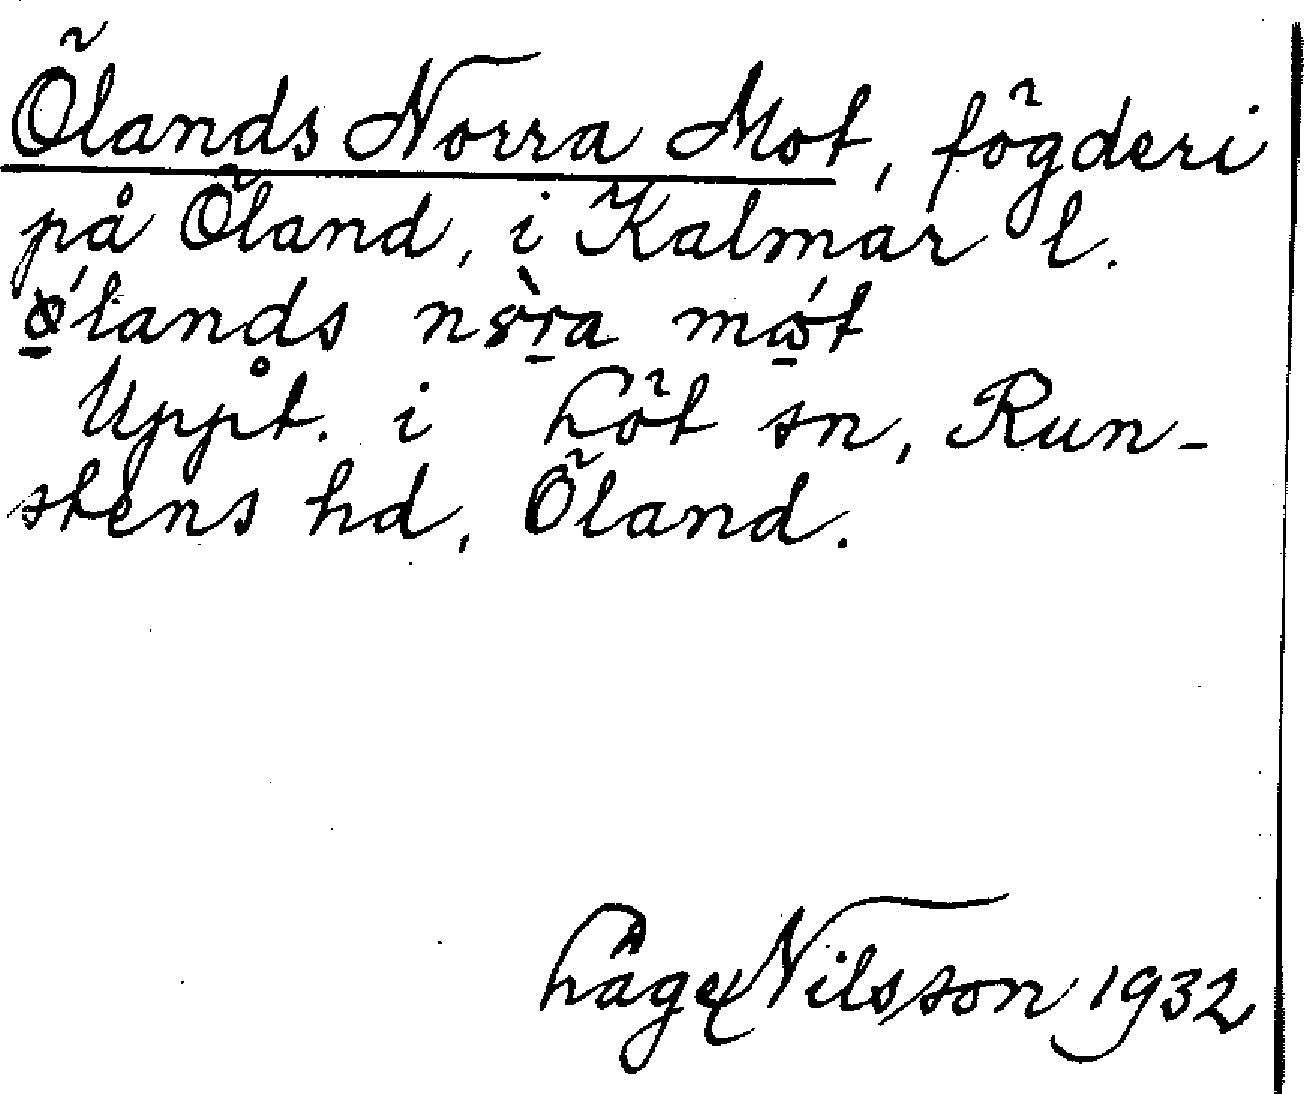 Ölands Norra Mot, fögderi
på Öland, i Kalmar l.
ǿ̱lands nòra mó̱t
Uppt. i Löt sn, Run-
stens hd, Öland.
Låge Nilsson 1932